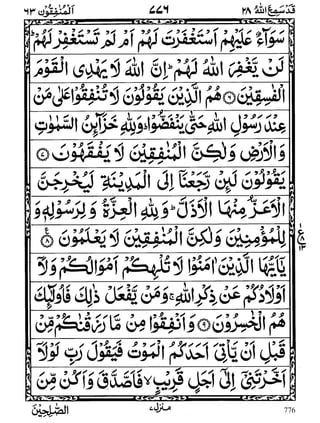 قَدْ سَمِعَ اللهُ ٢٨ ٧٧٦ اَلْمُنٰفِقُوْنَ ٦٣
سَوَآءٌ عَلَيْهِمْ اَسْتَغْفَرْتَ لَهُمْ اَمْ لَمْ تَسْتَغْفِرْ لَهُمْ ؕ
لَنْ يَّغْفِرَ اللهُ لَهُمْ ؕ اِنَّ اللهَ لَا يَهْدِى الْقَوْمَ
الْفٰسِقِيْنَ ۝٦ هُمُ الَّذِيْنَ يَقُوْلُوْنَ لَا تُنْفِقُوْا عَلٰى مَنْ
عِنْدَ رَسُوْلِ اللهِ حَتّٰى يَنْفَضُّوْا ؕ وَلِلّٰهِ خَزَآئِنُ السَّمٰوٰتِ
وَالْاَرْضِ وَلٰكِنَّ الْمُنٰفِقِيْنَ لَا يَفْقَهُوْنَ ۝٧
يَقُوْلُوْنَ لَئِنْ رَّجَعْنَاۤ اِلَى الْمَدِيْنَةِ لَيُخْرِجَنَّ
الْاَعَزُّ مِنْهَا الْاَذَلَّ ؕ وَلِلّٰهِ الْعِزَّةُ وَلِرَسُوْلِهٖ وَ
لِلْمُؤْمِنِيْنَ وَلٰكِنَّ الْمُنٰفِقِيْنَ لَا يَعْلَمُوْنَ ۝٨
يٰۤاَيُّهَا الَّذِيْنَ اٰمَنُوْا لَا تُلْهِكُمْ اَمْوَالُكُمْ وَلَاۤ
اَوْلَادُكُمْ عَنْ ذِكْرِ اللهِ ۚ وَمَنْ يَّفْعَلْ ذٰلِكَ فَاُولٰٓئِكَ
هُمُ الْخٰسِرُوْنَ ۝٩ وَاَنْفِقُوْا مِنْ مَّا رَزَقْنٰكُمْ مِّنْ
قَبْلِ اَنْ يَّاْتِىَ اَحَدَكُمُ الْمَوْتُ فَيَقُوْلَ رَبِّ لَوْلَاۤ
اَخَّرْتَنِىْۤ اِلٰٓى اَجَلٍ قَرِيْبٍ ۙ فَاَصَّدَّقَ وَاَكُنْ مِّنَ
776 منزل ٧ الصّٰلِحِيْنَ